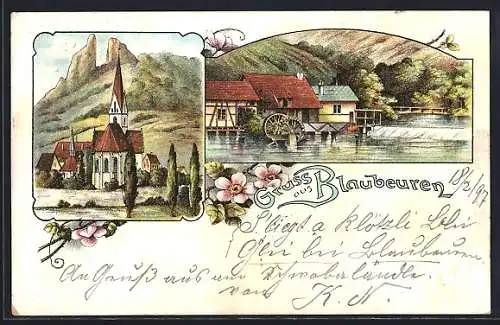 Gruss aus Blaubeuren
18/2/97
S'liegt a Klötzli Blei
Glei bei Blaubeuren
An Gruß aus am Schwobaländle.
von K. N.